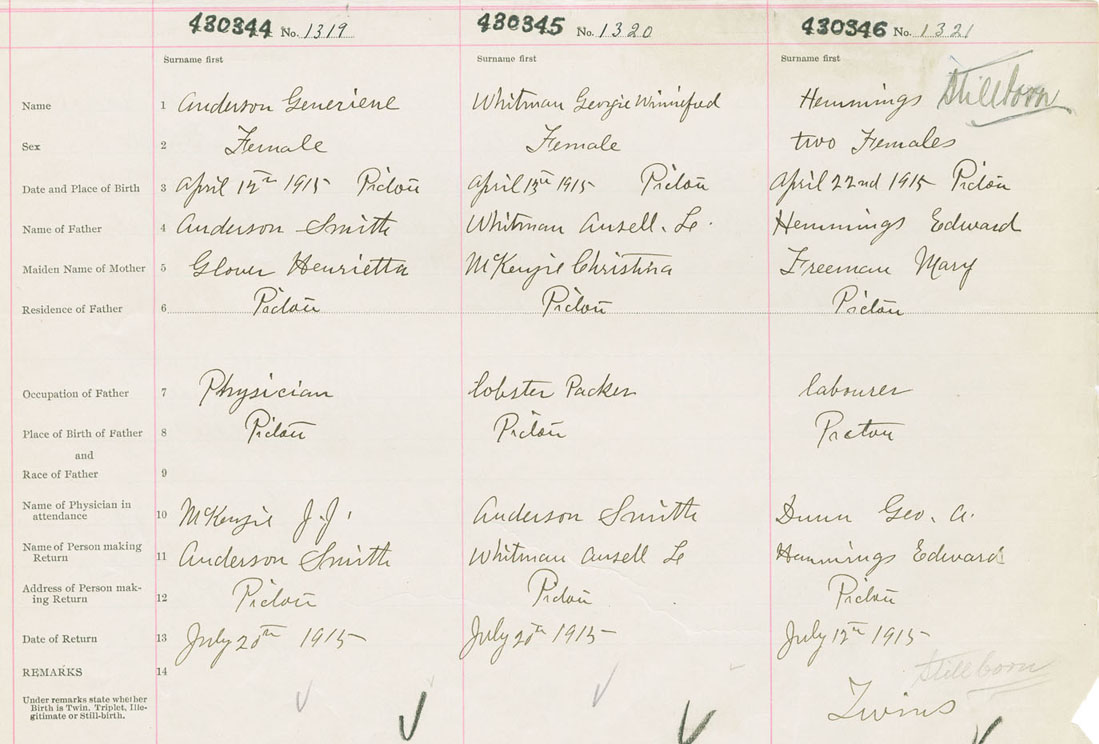 430344 No. 1319 430345 No. 1320 430346 No. 1321
Surname first Surname first Surname first
Stillborn
Name 1 Anderson Generiene Whitman Georgie Winnifred Hemmings
Sex 2 Female Female two Females
Date and Place of Birth 3 April 12th 1915 Pictou April 13th 1915 Pictou April 22nd 1915 Pictou
Name of Father 4 Anderson Smith Whitman Ansell. Le. Hemmings Edward
Maiden Name of Mother 5 Glover Henrietta McKenzie Christina Freeman Mary
Residence of Father 6 Pictou Pictou Pictou
Occupation of Father 7 Physician lobster Packer labourer
Place of Birth of Father 8 Pictou Pictou Pictou
and
Race of Father 9
Name of Physician in
attendance 10 McKenzie J. J. Anderson Smith Dunn Geo. A.
Name of Person making
Return 11 Anderson Smith Whitman Ansell Le Hemmings Edward
Address of Person mak-
ing Return 12 Pictou Pictou Pictou
Date of Return 13 July 20th 1915 July 20th 1915 July 12th 1915
REMARKS 14 Stillborn
Under remarks state whether
Birth is Twin. Triplet, Ille-
gitimate or Still-birth. Twins